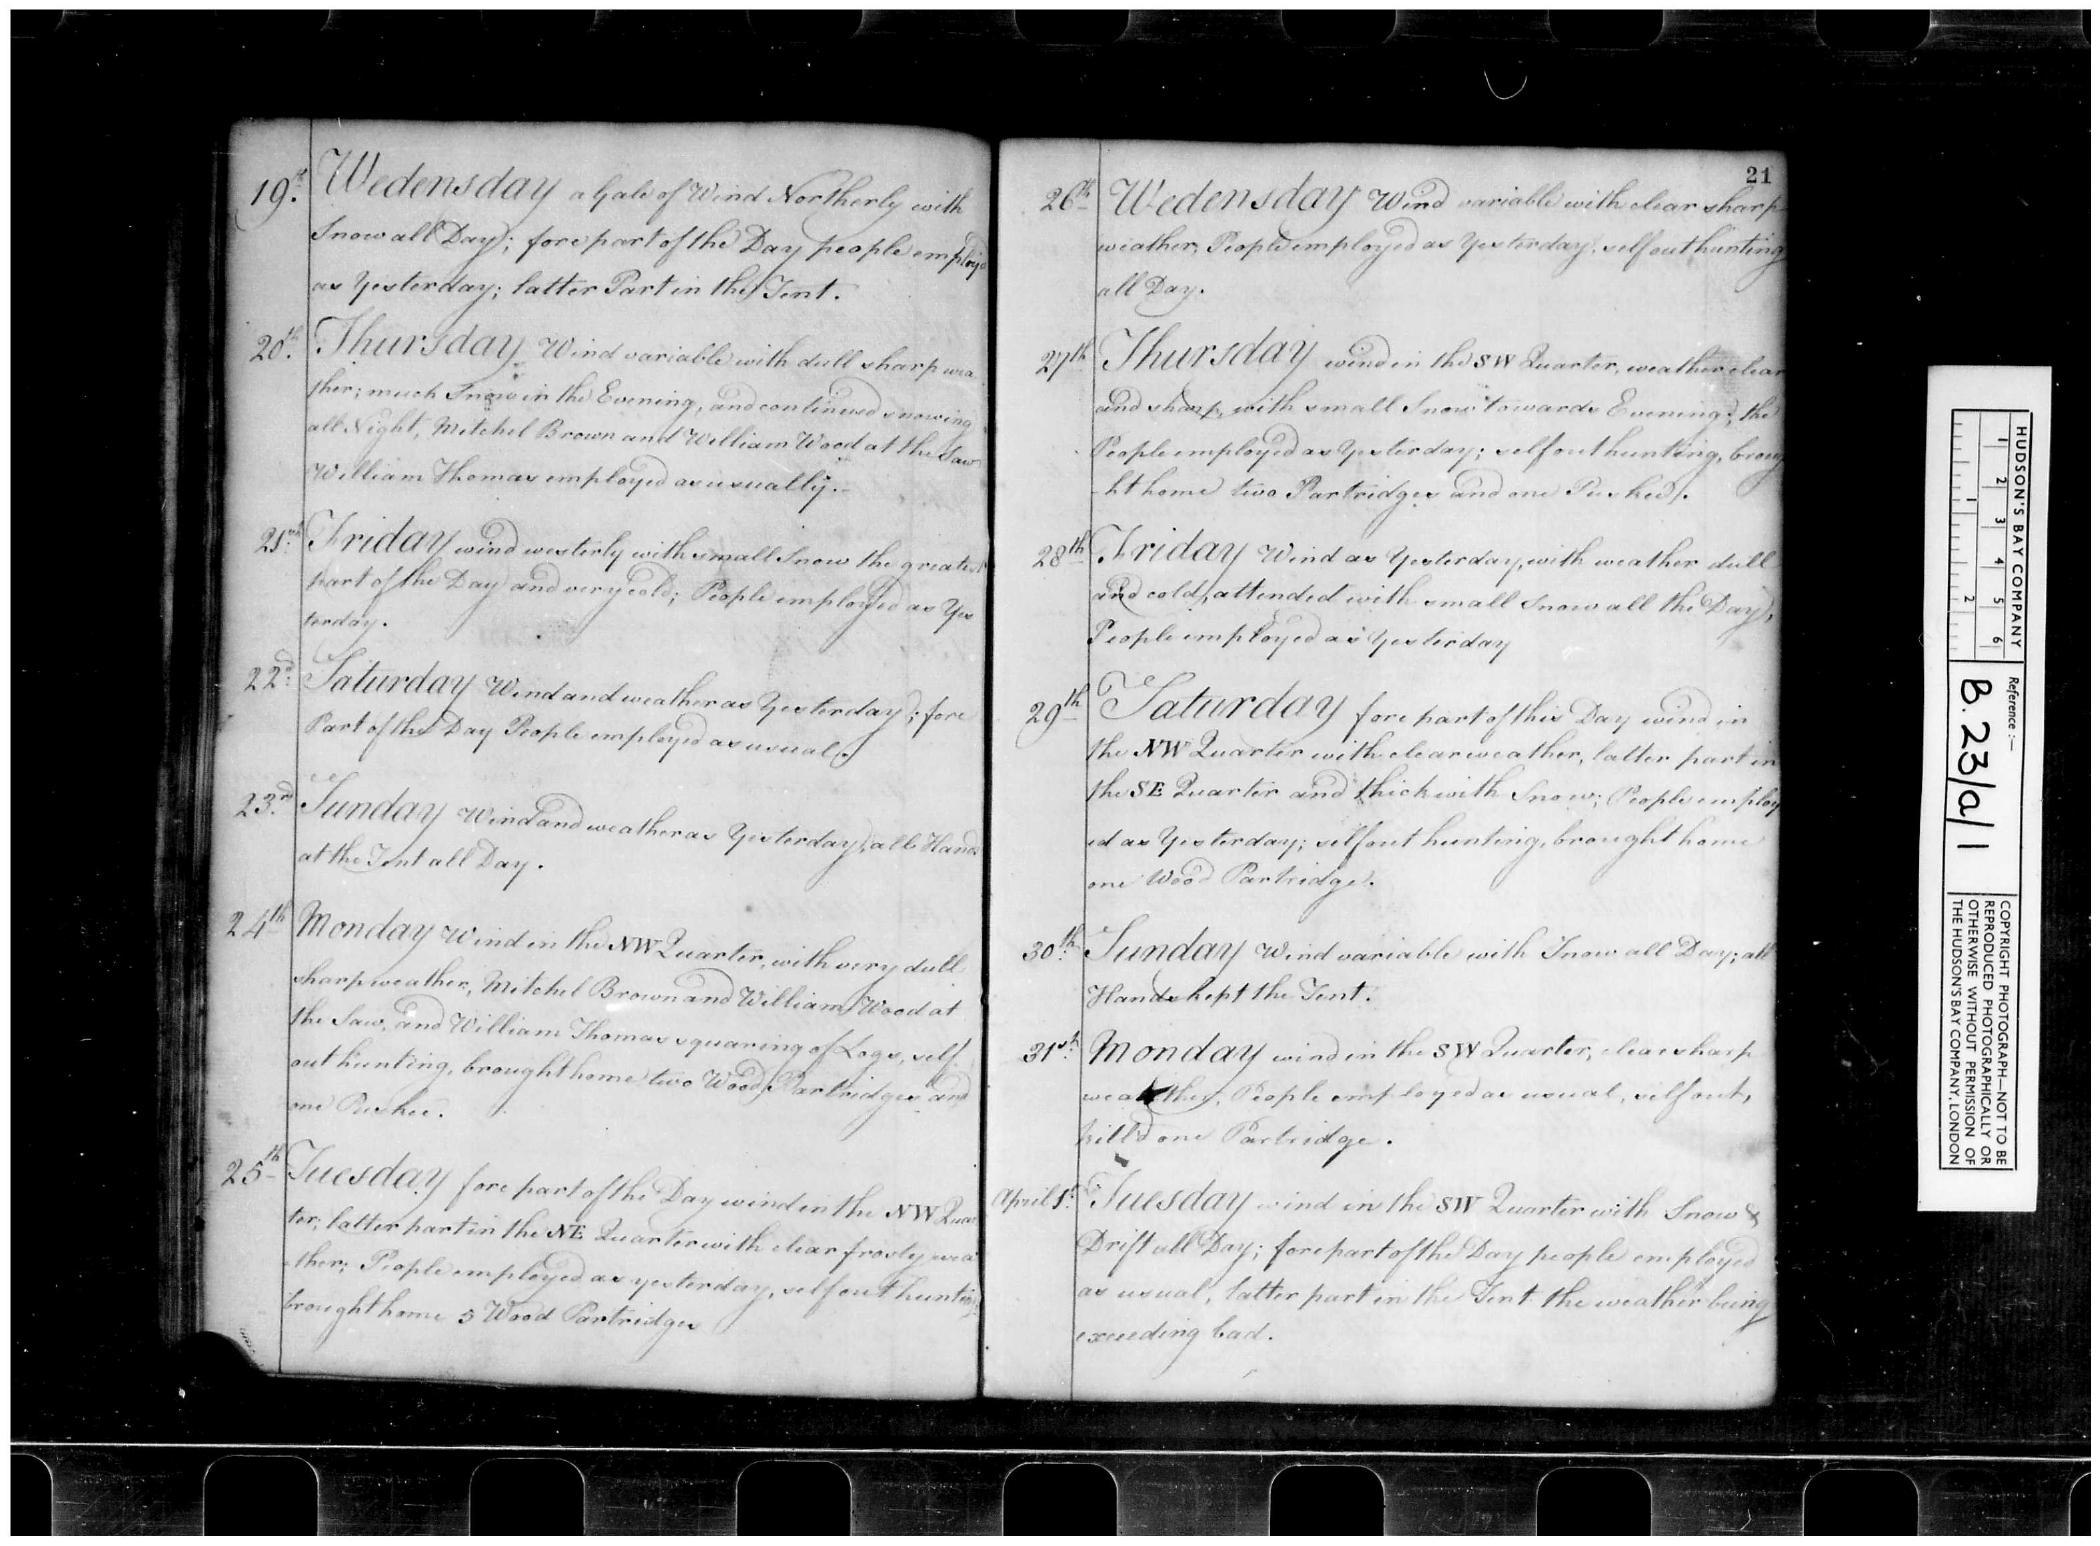 19.th Wedensday a Gale of Wind Northerly with
Snow all Day; fore part of the Day people employd
as Yesterday; latter Part in the Tent.
20.th Thursday Wind variable with dull sharp wea
ther; much Snow in the Evening, and continued snowing
all Night, Mitchel Brown and William Wood at the Saw
William Thomas employed as usually.
21.st Friday wind westerly with small Snow the greatest
part of the Day and very cold; People employed as Yes
terday.
22.d Saturday Wind and weather as Yesterday; fore
Part of the Day People employed as usual.
23.rd Sunday Wind and weather as Yesterday, all Hands
at the Tent all Day.
24th Monday Wind in the NW Quarter, with very dull
sharp weather, Mitchel Brown and William Wood at
the Saw, and William Thomas squaring of Logs, self
out hunting, brought home two Wood Partridges and
one Peshee.
25th Tuesday fore part of the Day wind in the NW Quar
ter; latter part in the NE Quarter with clear frosty wea
-ther; People employed as yesterday, self out hunting
brought home 5 Wood Partridges
21
26th Wedensday Wind variable with clear sharp
weather, People employed as Yesterday, self out hunting
all Day.
27th Thursday wind in the SW Quarter, weather clear
and sharp, with small Snow towards Evening; the
People employed as Yesterday; self out hunting, broug
-ht home two Partridges and one Peshee.
28th Friday Wind as Yesterday, with weather dull
and cold, attended with small Snow all the Day,
People employed as Yesterday
29th Saturday fore part of this Day wind in
the NW Quarter with clear weather, latter part in
the SE Quarter and thick with Snow; People employ
ed as Yesterday; self out hunting, brought home
one Wood Partridge.
30th Sunday Wind variable with Snow all Day; all
Hands kept the Tent.
31st Monday wind in the SW Quarter, clear sharp
weather, People employed as usual, self out,
kill'd one Partridge.
April 1st Tuesday wind in the SW Quarter with Snow &
Drift all Day; fore part of the Day people employed
as usual, latter part in the Tent the weather being
exceeding bad.
HUDSON'S BAY COMPANY
1 2 3 4 5 6
1 2
Reference :—
B.23/a/1
COPYRIGHT PHOTOGRAPH—NOT TO BE
REPRODUCED PHOTOGRAPHICALLY OR
OTHERWISE WITHOUT PERMISSION OF
THE HUDSON'S BAY COMPANY, LONDON